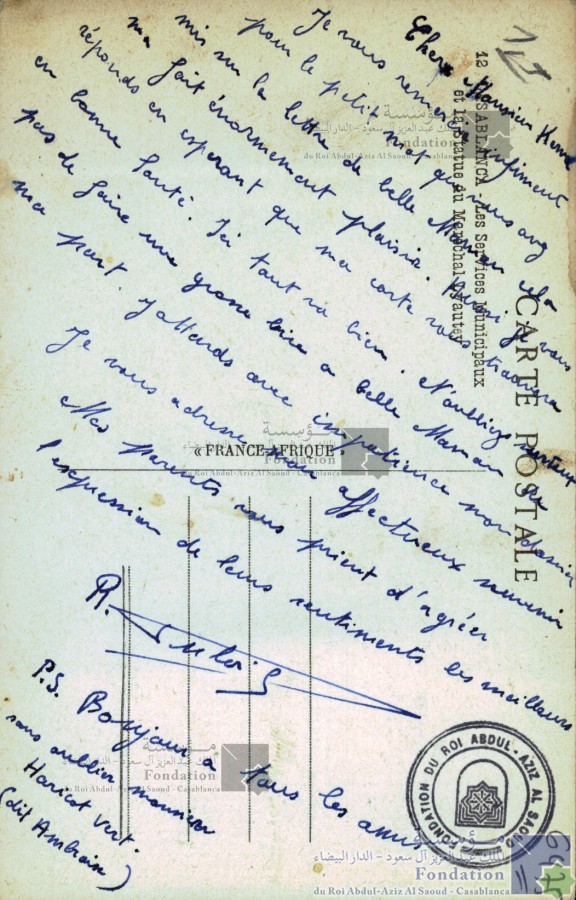 12 CASABLANCA - Les Services Municipaux
et la Statue du Maréchal Lyautey
CARTE POSTALE
« FRANCE-AFRIQUE »
Cher Monsieur
Je vous remercie infiment
pour le petit mot que vous avez
mis sur la lettre de belle Maman cela
ma fait énormement plaisir. Aussi je vous
réponds en esperant que ma carte vous trouvera
en bonne santé. Ici tout va bien. N'oubliez surtout
pas de faire une grosse bise a belle Maman de
ma part. J'attends avec impatience son
Je vous adresse mon affectueux souvenir
Mes parents vous prient d'agréer
l'expression de leurs sentiments les meilleurs
R.
P.S. Bonjour a tous les amis
sans oublier monsieur
Haricot Vert.
(dit )
FONDATION DU ROI ABDUL-AZIZ AL SAOUD
مؤسسة
الملك عبد العزيز آل سعود - الدار البيضاء
Fondation
du Roi Abdul-Aziz Al Saoud - Casablanca